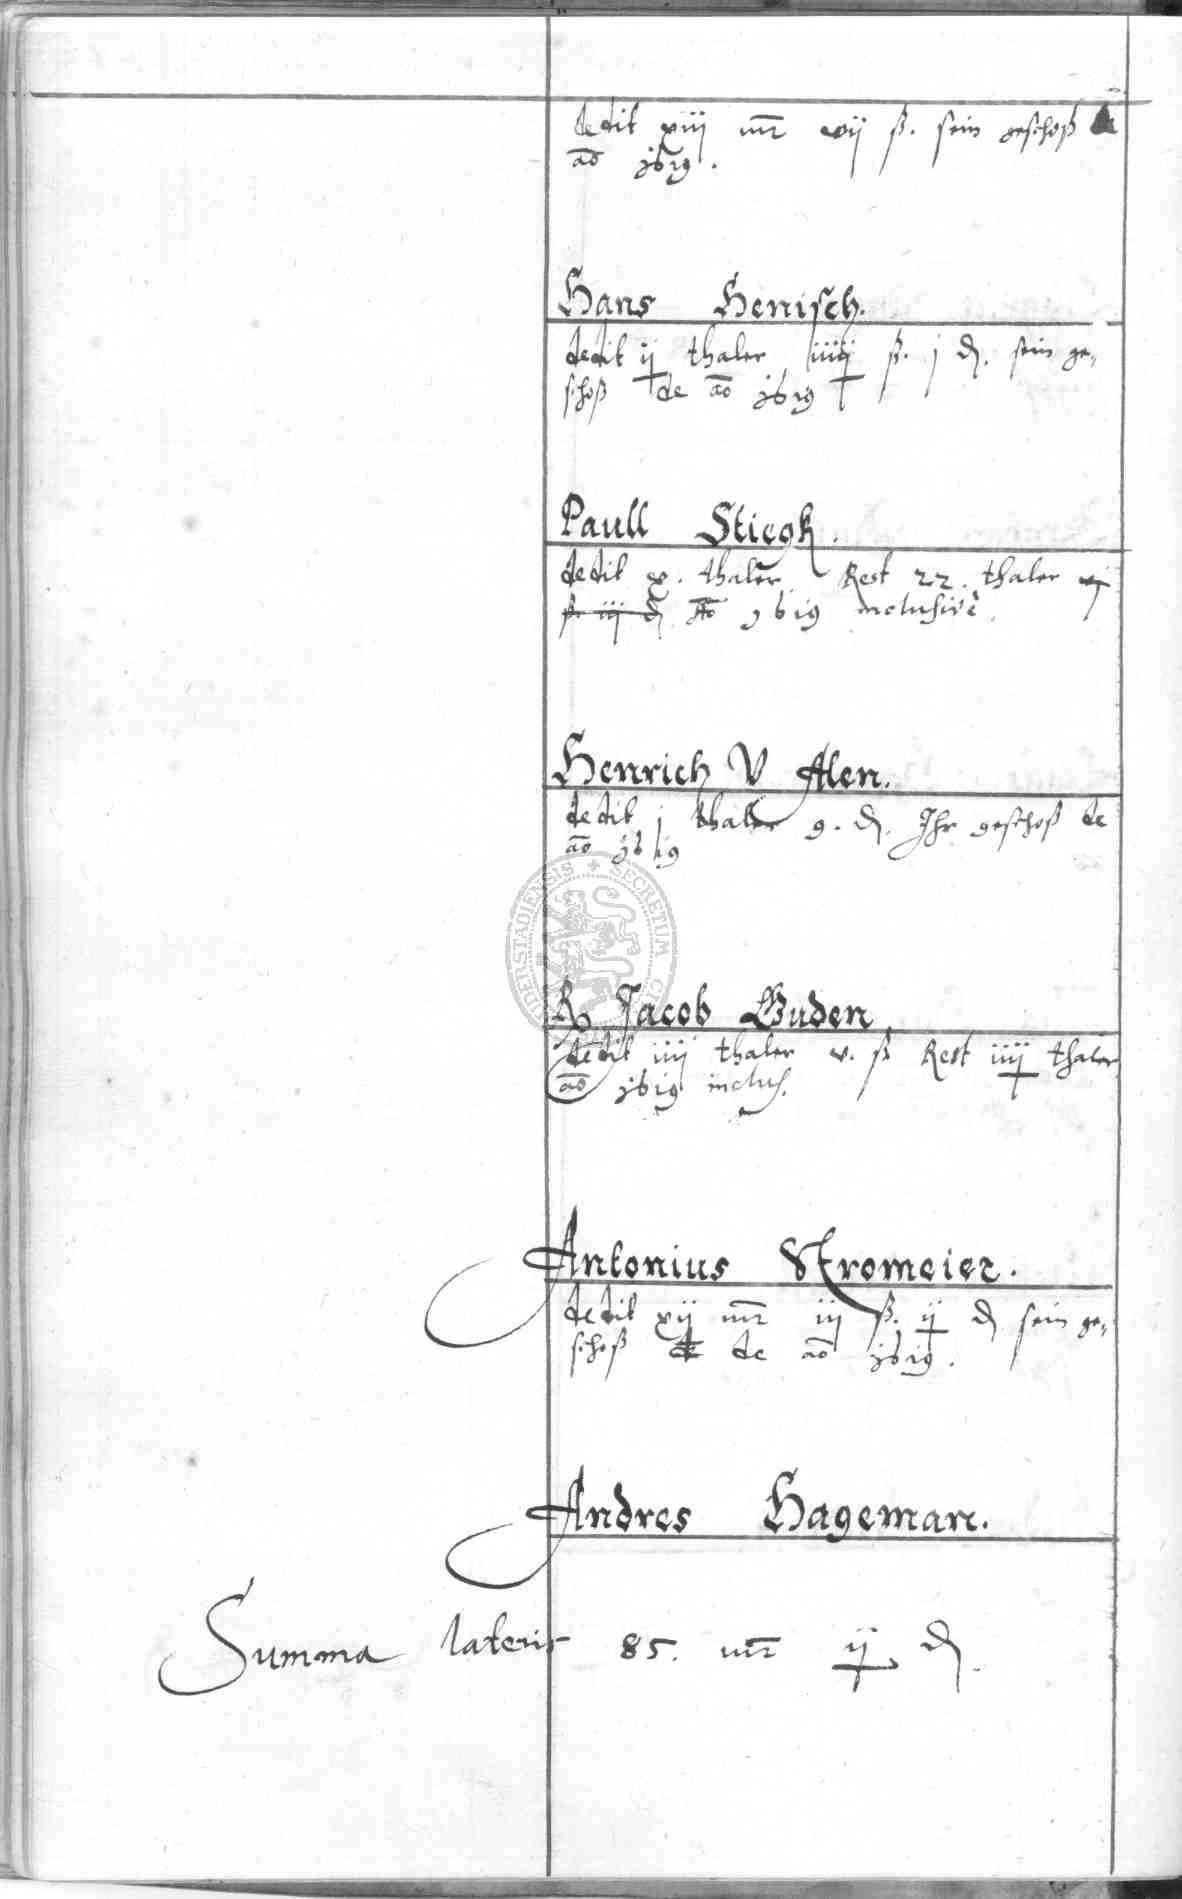 dedit xiij mr vij ß. sein geschoß
ao 1619.
Hans Henisch.
dedit ij thaler iiij ß. j d. sein ge-
schoß de ao 1619
Paull Stiegk.
dedit x. thaler. Rest 22. thaler
ß. iij d. Ao 1619 inclusivè.
Henrich V Alen.
dedit j thaler 9. d. Ihr geschoß de
ao 1619
SECRETUM
DUDERSTADIENSIS
R Jacob Guden
dedit iiij thaler v. ß Rest iiij thaler
ao 1619 inclus.
Antonius Stromeier.
dedit xij mr iij ß. ij d sein ge-
schoß de ao 1619.
Andres Hageman.
Summa lateris 85. mr ij d.